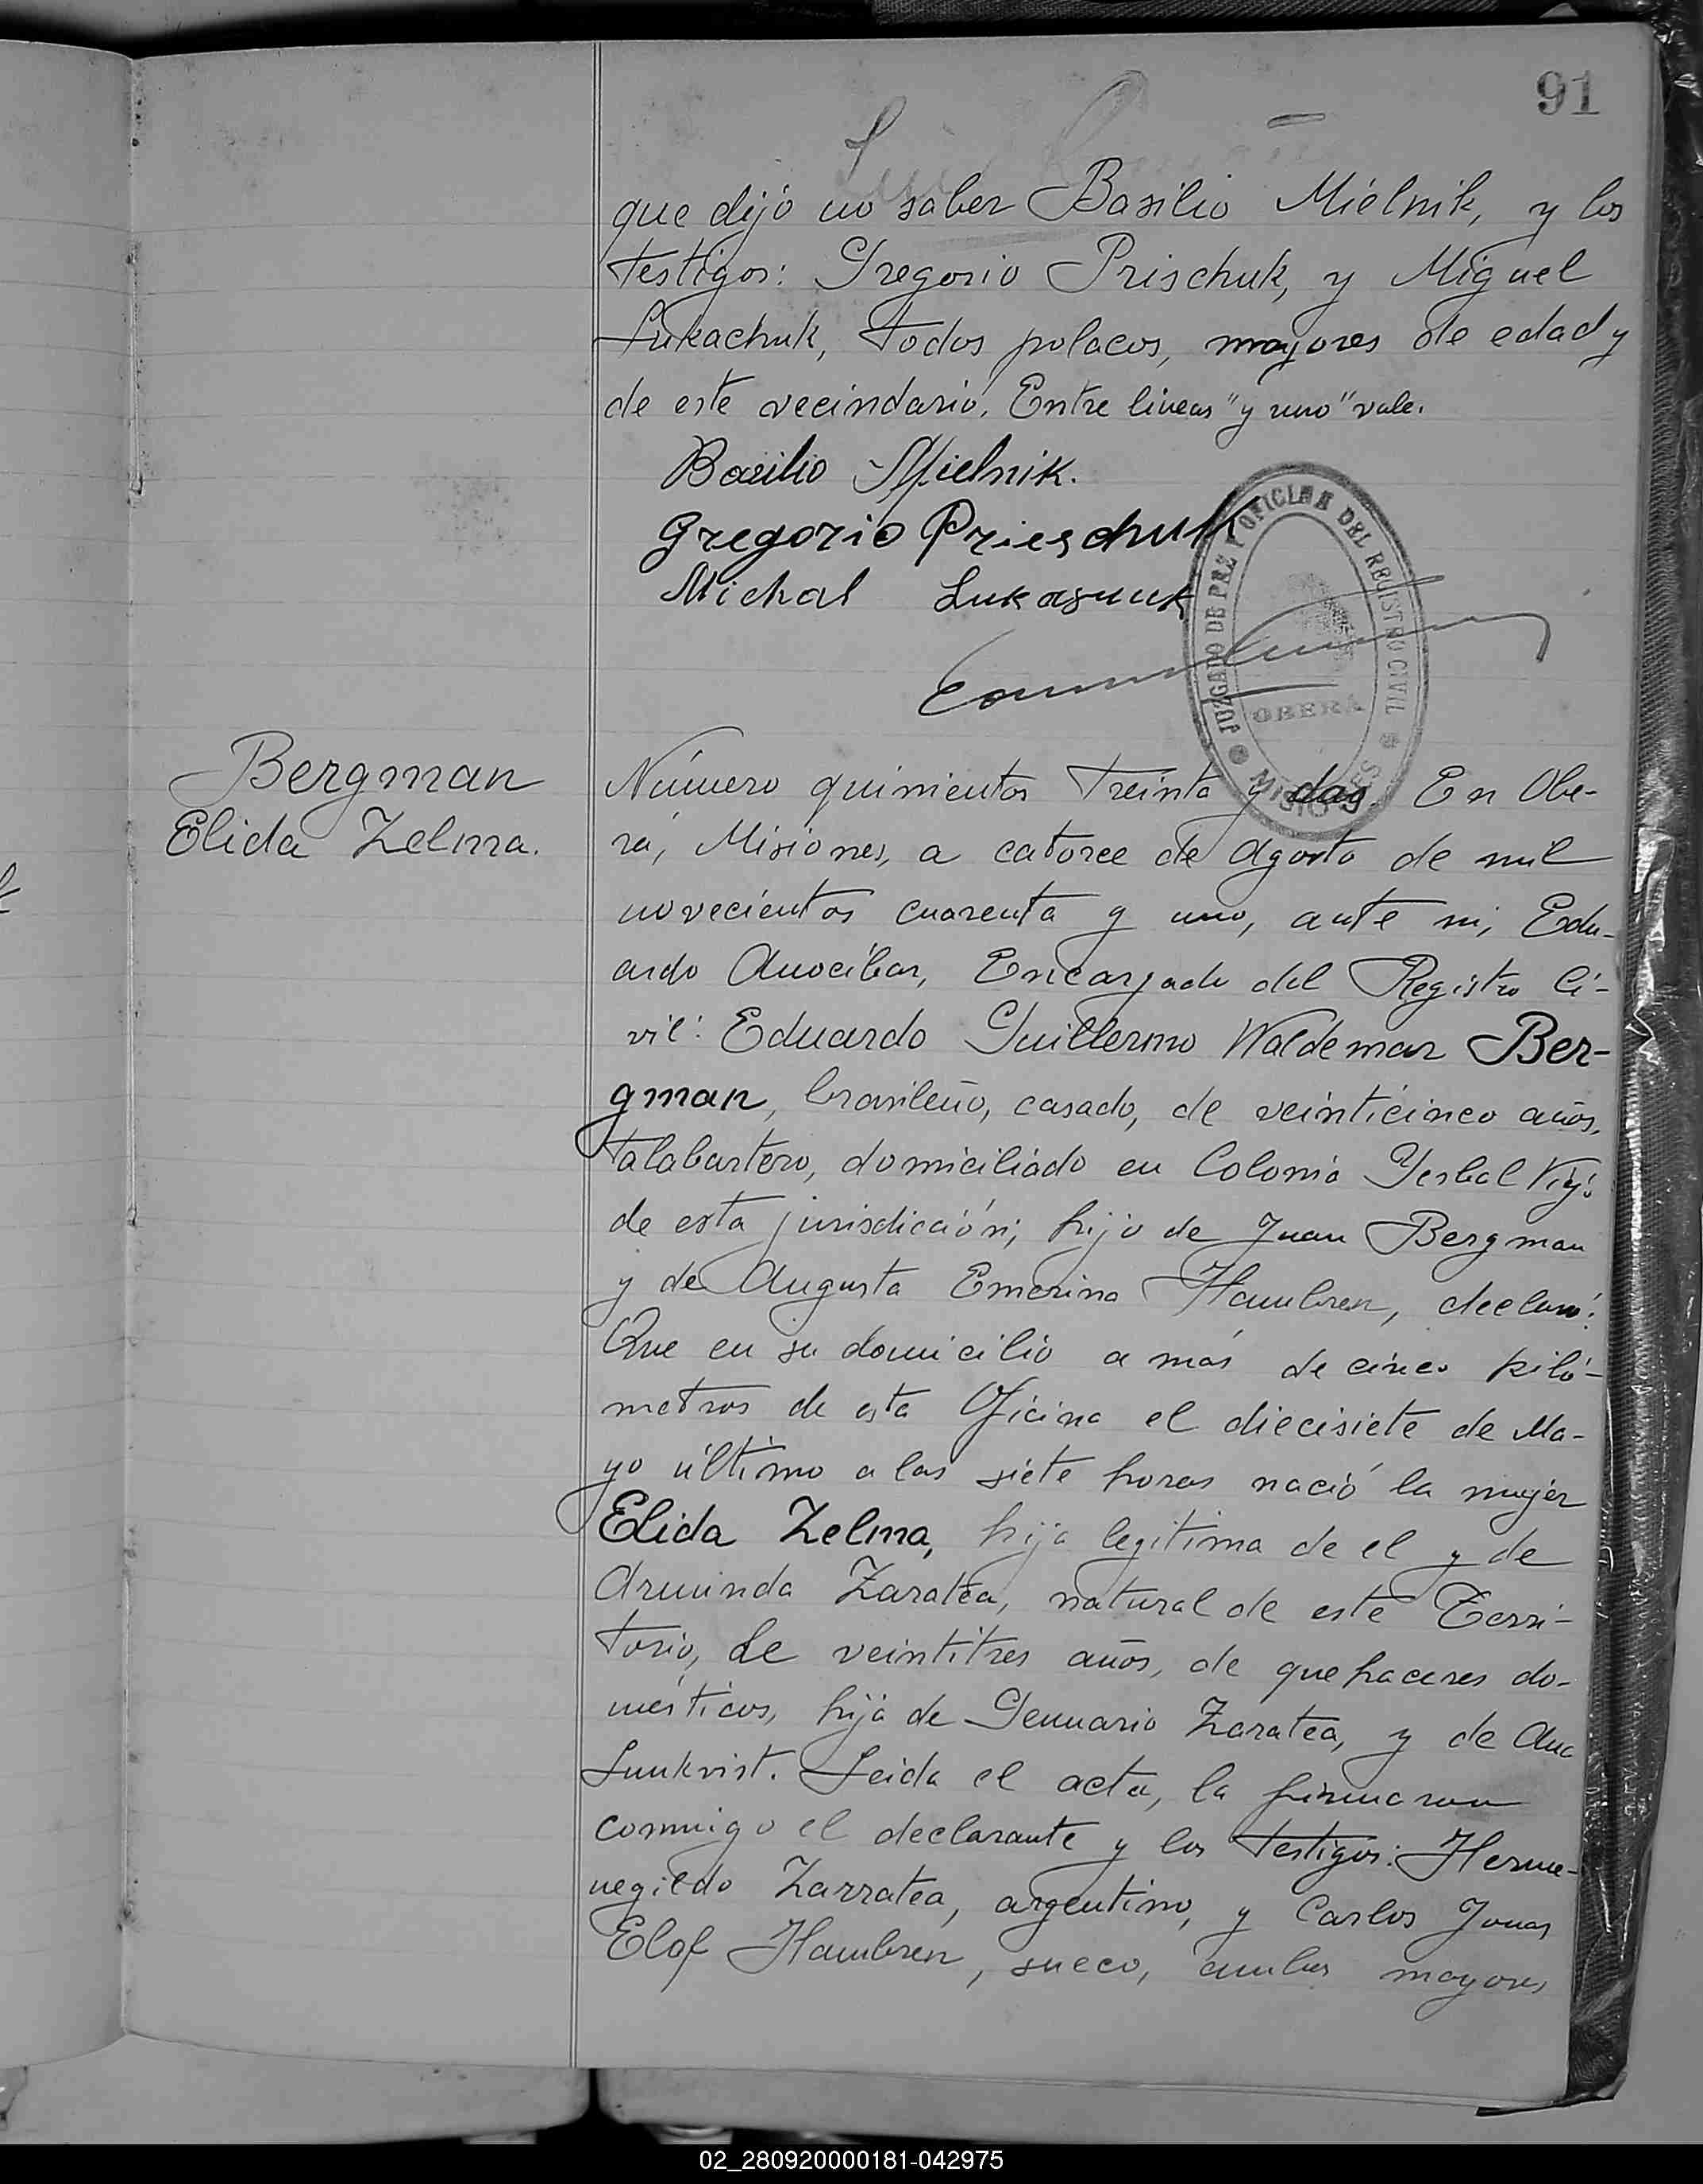 91
que dijó no saber Basilio Mielnik, y los
testigos: Gregorio Prischuk, y Miguel
Lukachuk, todos polacos, mayores de edad y
de este vecindario. Entre lineas "y uno" vale.
Basilio Mielnik.
Gregorio Prieschuk
Michal Lukasuuk
JUZGADO DE PAZ Y OFICINA DEL REGISTRO CIVIL
OBERA
MISIONES
Bergman
Elida Zelma.
Número quinientos treinta y dos. En Obe-
rá, Misiones, a catorce de Agosto de mil
novecientos cuarenta y uno, ante mi, Edu-
ardo Anocibar, Encargado del Registro Ci-
vil: Eduardo Guillermo Waldemar Ber-
gman, brasileño, casado, de veinticinco años,
talabartero, domiciliado en Colonia Yerbal Viejo
de esta jurisdicción; hijo de Juan Bergman
y de Augusta Emerina Hambren, declaró:
Que en su domicilio a más de cinco kiló-
metros de esta Oficina el diecisiete de Ma-
yo último a las siete horas nació la mujer
Elida Zelma, hija legitima de el y de
Arminda Zaratea, natural de este Terri-
torio, de veintitres años, de quehaceres do-
mésticos, hija de Genuario Zaratea, y de Ana
Lunkvist. Leida el acta, la firmaron
conmigo el declarante y los testigos: Herme-
negildo Zarratea, argentino, y Carlos Jonas
Elof Hambren, sueco, ambos mayores
02_280920000181-042975